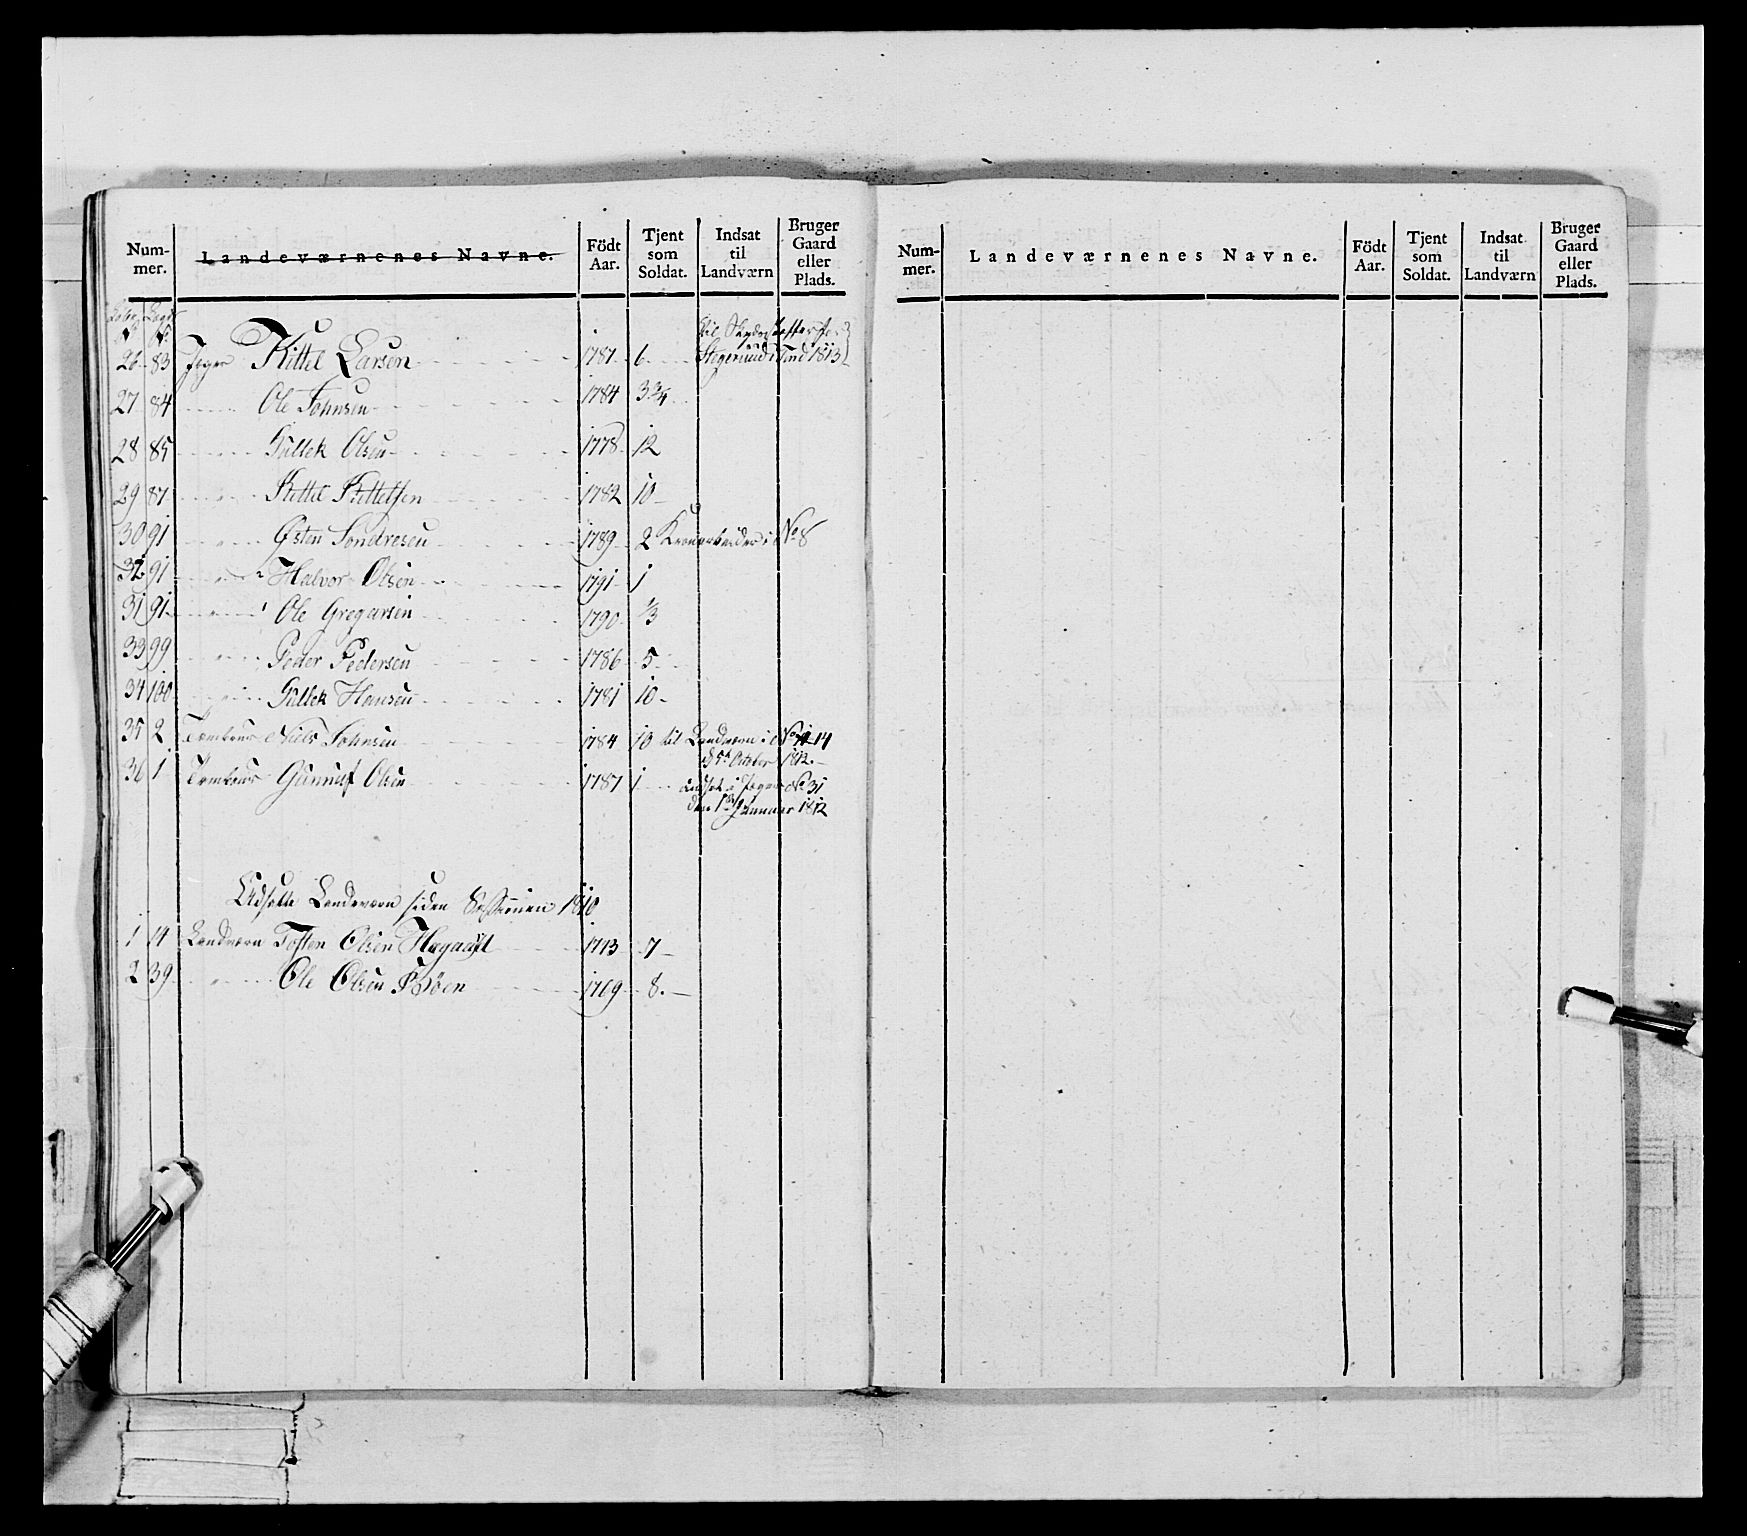 Num-
mer.
Landeværnenes Navne.
Födt
Aar.
Tjent
som
Soldat.
Indsat
til
Landværn
Bruger
Gaard
eller
Plads.
No No
26 83 Jæger Kittel Larsen 1787 6 1813
27 84 Ole Johnsen 1784 3 3/4
28 85 Gullek Olsen 1778 12
29 87 Kittel Kittelsen 1782 10
30 91 Østen Sondresen 1789 2 No 8
32 91 Halvor Olsen 1791 1
31 91 Ole Gregarsen 1790 1/3
33 99 Peder Pedersen 1786 5
34 100 Gullek Hansen 1781 10
35 2 Niels Johnsen 1784 10 til Landværn i No 14
October 1812
36 1 Gunnuf Olsen 1787 1 indsat i Jæger No 31
den 1ste Januar 1812
Udsatte Landeværn siden Sessionen 1810
1 19 Landværn Tosten Olsen 1773 7
2 39 Ole Olsen Bøen 1769 8
Num-
mer.
Landeværnenes Navne.
Födt
Aar.
Tjent
som
Soldat.
Indsat
til
Landværn
Bruger
Gaard
eller
Plads.